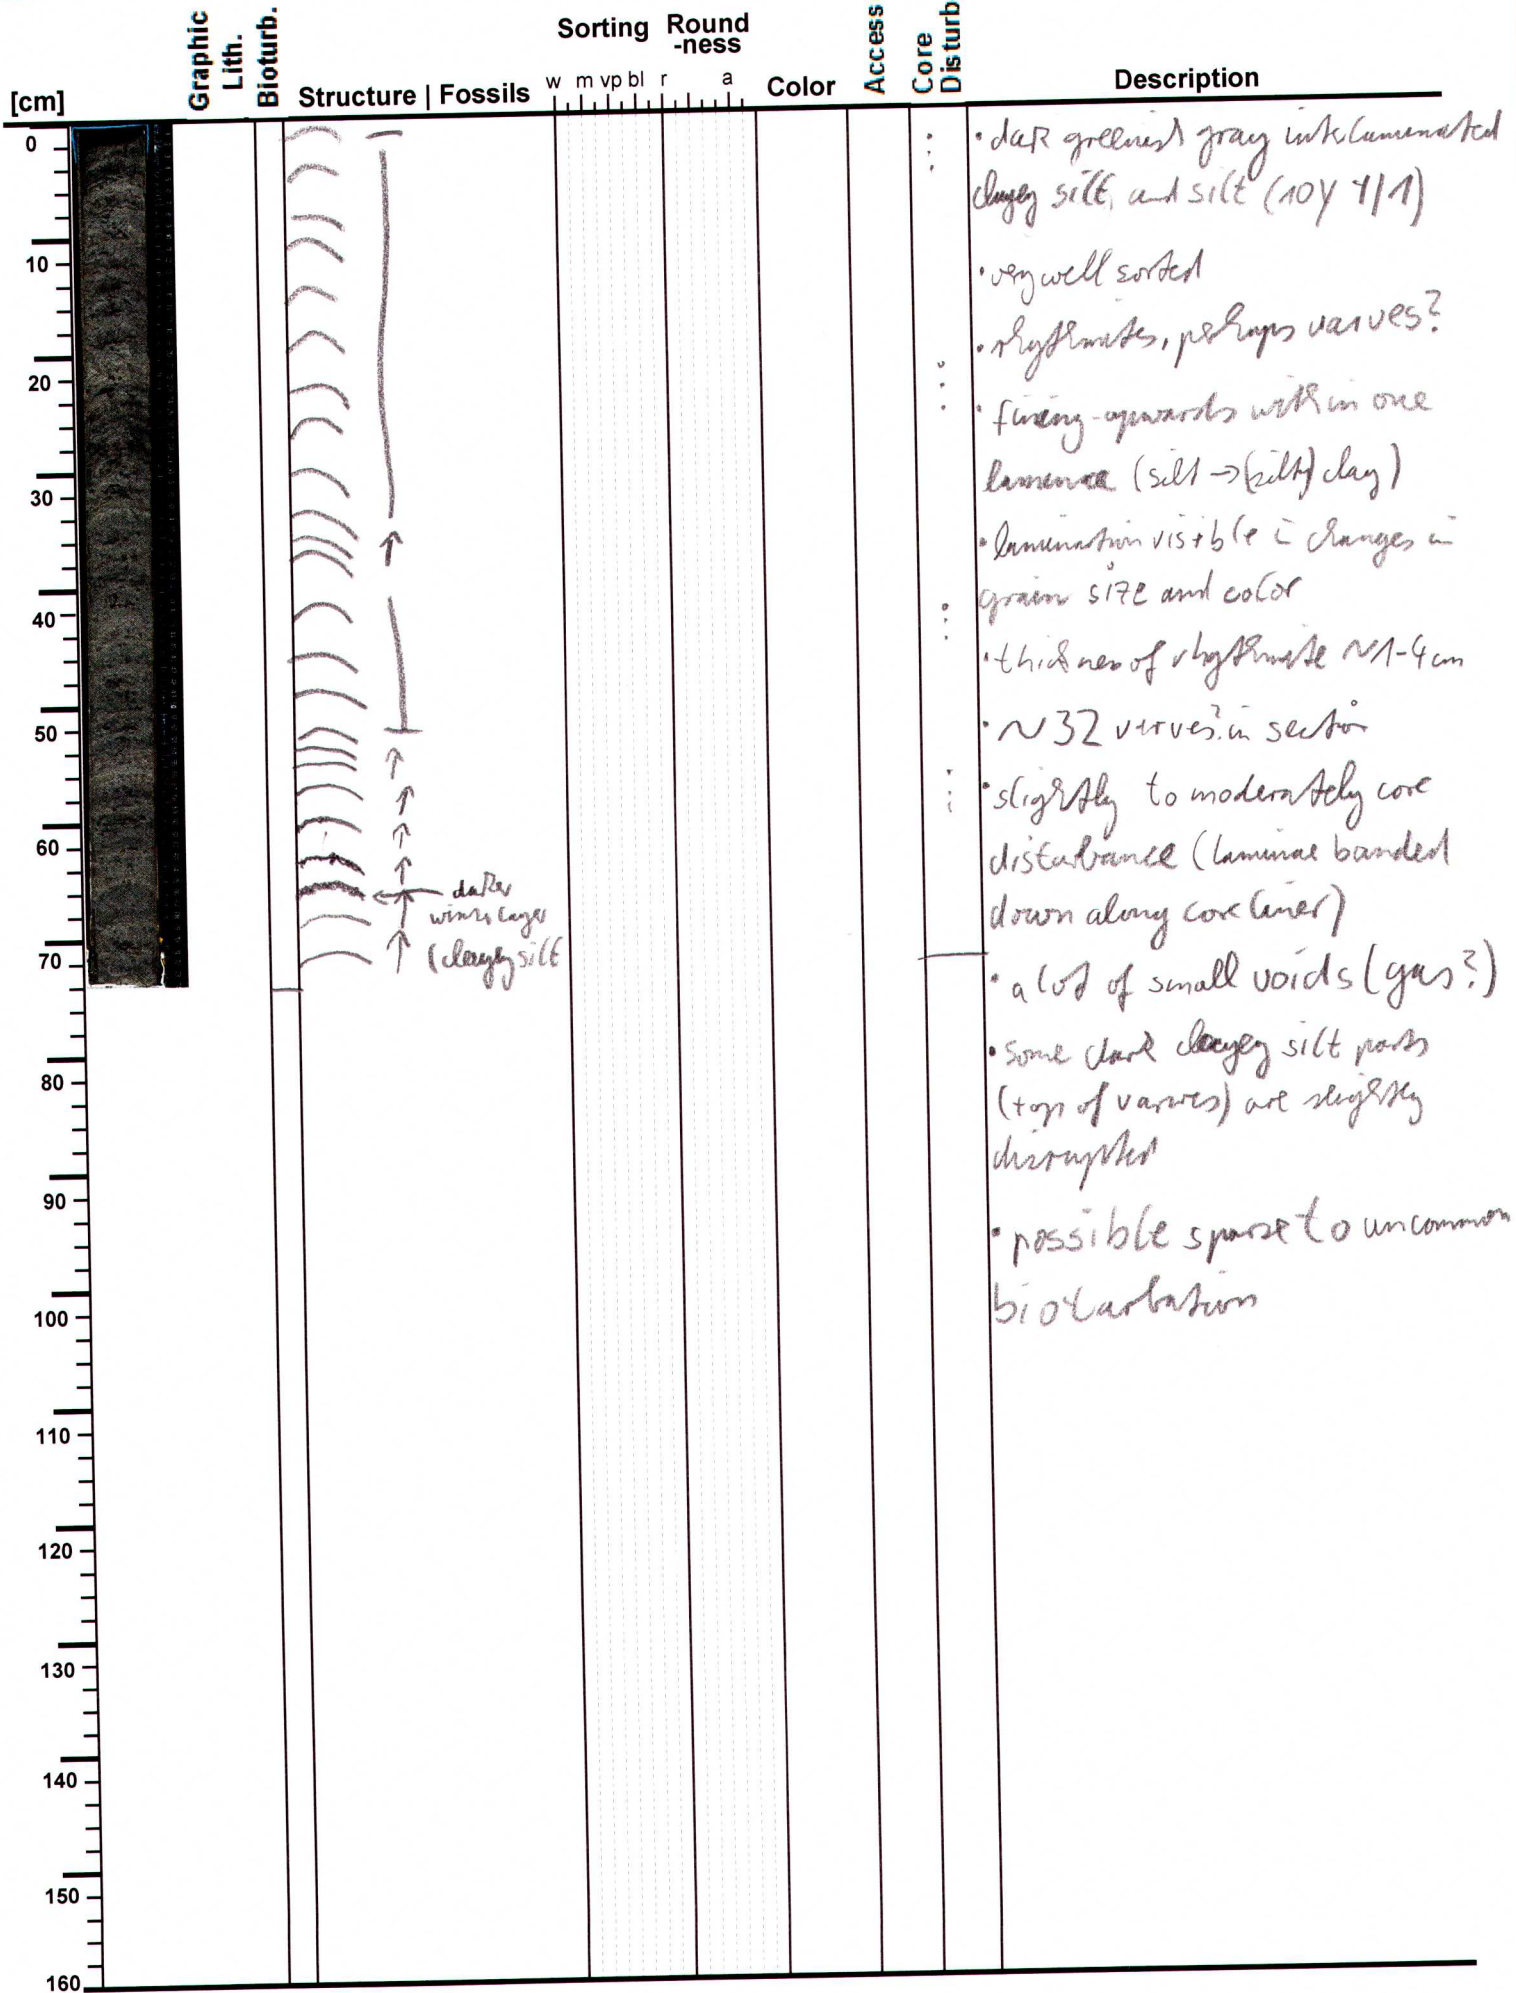 Graphic
Lith.
Bioturb.
Sorting Round
-ness
Access
Core
Disturb
[cm] Structure | Fossils w m vp bl r a Color Description
0
10
20
30
40
50
60
70
80
90
100
110
120
130
140
150
160
darker
winter layer
(clayey silt
• dark greenish gray interlaminated
clayey silt, and silt (10Y 4/1)
• very well sorted
• rhythmites, perhaps varves?
• fining-upwards within one
laminae (silt → (silty) clay)
• lamination visible in changes in
grain size and color
• thickness of rhythmite ~1-4 cm
• ~32 varves? in section
• slightly to moderately core
disturbance (laminae banded
down along core liner)
• a lot of small voids (gas?)
• some dark clayey silt parts
(top of varves) are slightly
disrupted
• possible sparse to uncommon
bioturbation